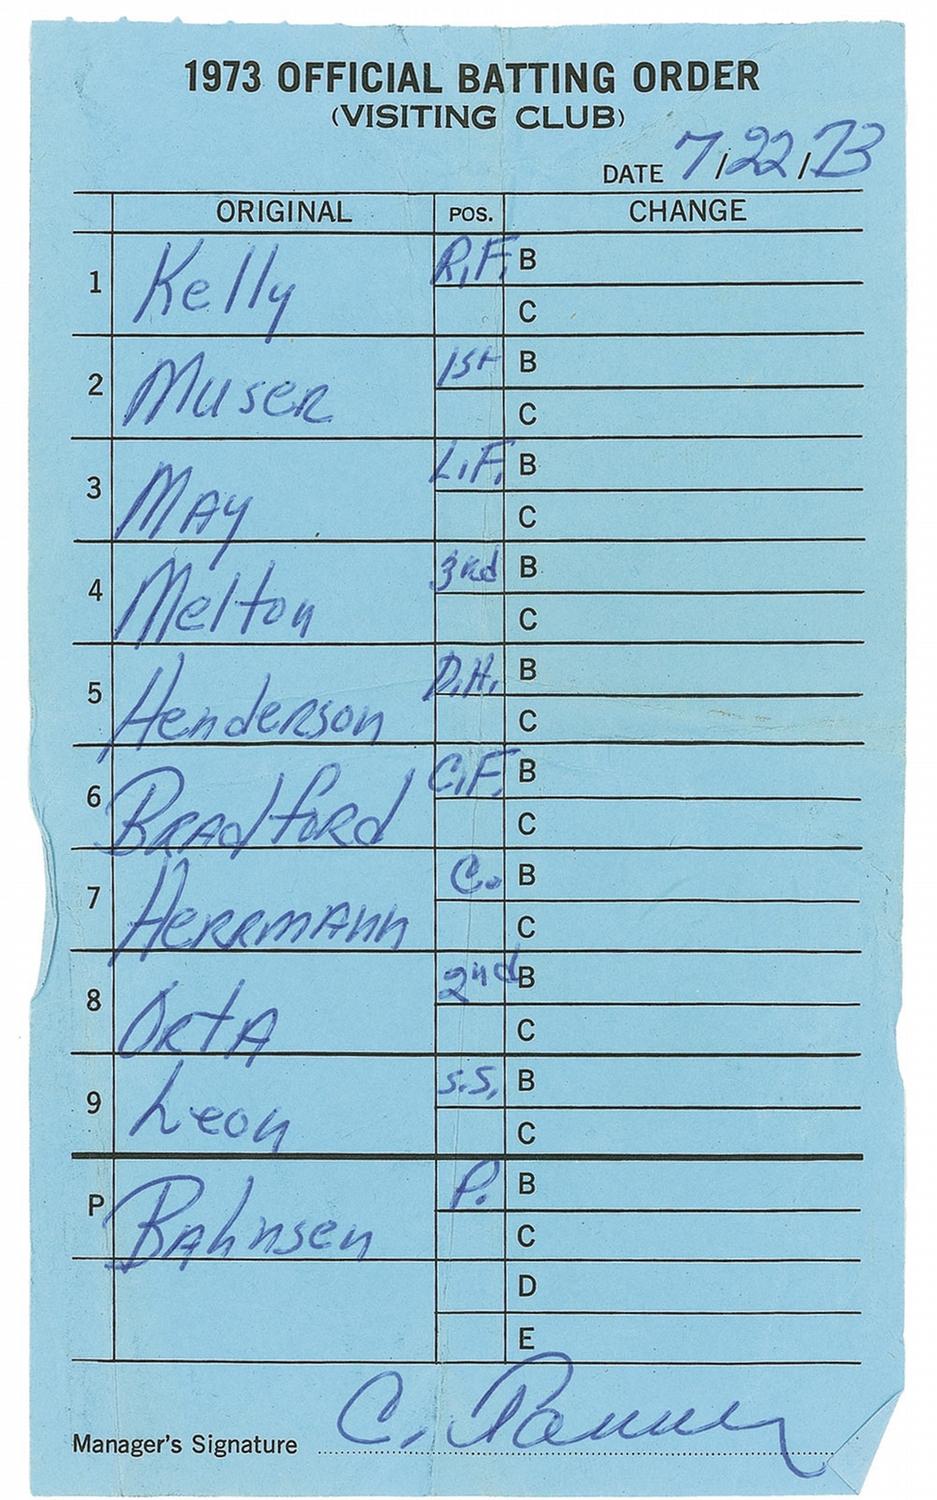 1973 OFFICIAL BATTING ORDER
(VISITING CLUB)
DATE 7/22/73
ORIGINAL POS. CHANGE
1 Kelly R.F. B
C
2 Muser 1st B
C
3 May L.F. B
C
4 Melton 3rd B
C
5 Henderson D.H. B
C
6 Bradford C.F. B
C
7 Herrmann C. B
C
8 Orta 2nd B
C
9 Leon S.S. B
C
P Bahnsen P. B
C
D
E
Manager's Signature C. Tanner